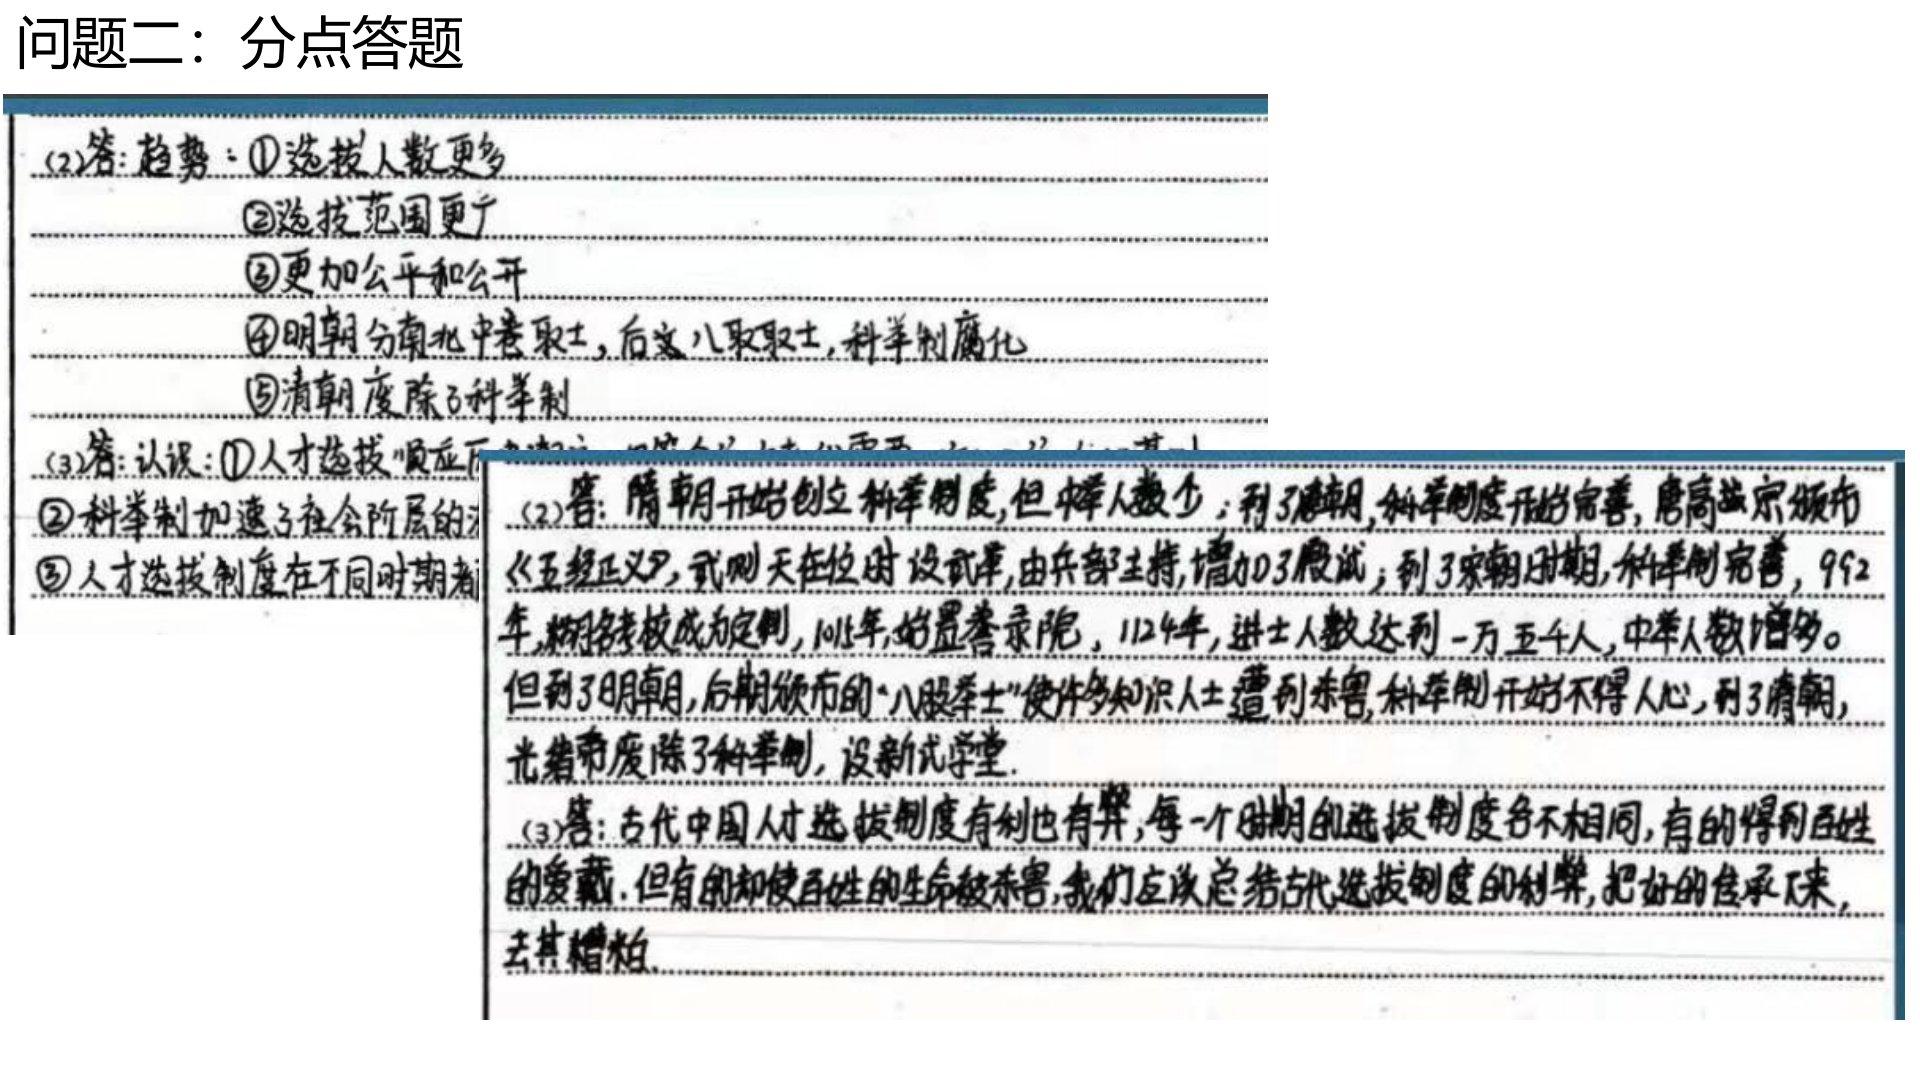 问题二：分点答题
(2)答：趋势：①选拔人数更多
②选拔范围更广
③更加公平和公开
④明朝分南北中卷取士，后文八取取士，科举制腐化
⑤清朝废除了科举制
(3)答：认识：①人才选拔顺应
②科举制加速了社会阶层的
③人才选拔制度在不同时期都
(2)答：隋朝开始创立科举制度，但中举人数少；到了唐朝，科举制度开始完善，唐高宗颁布
《五经正义》，武则天在位时设武举，由兵部主持，增加了殿试；到了宋朝时期，科举制完善，992
年，糊名考校成为定制，1015年，始置誊录院，1124年，进士人数达到一万五千人，中举人数增多。
但到了明朝，后期颁布的“八股举士”使许多知识人士遭到杀害，科举制开始不得人心，到了清朝，
光绪帝废除了科举制，设新式学堂.
(3)答：古代中国人才选拔制度有利也有弊，每一个时期的选拔制度各不相同，有的得到百姓
的爱戴.但有的却使百姓的生命被杀害，我们应该总结古代选拔制度的利弊，把好的传承下来，
去其糟粕.